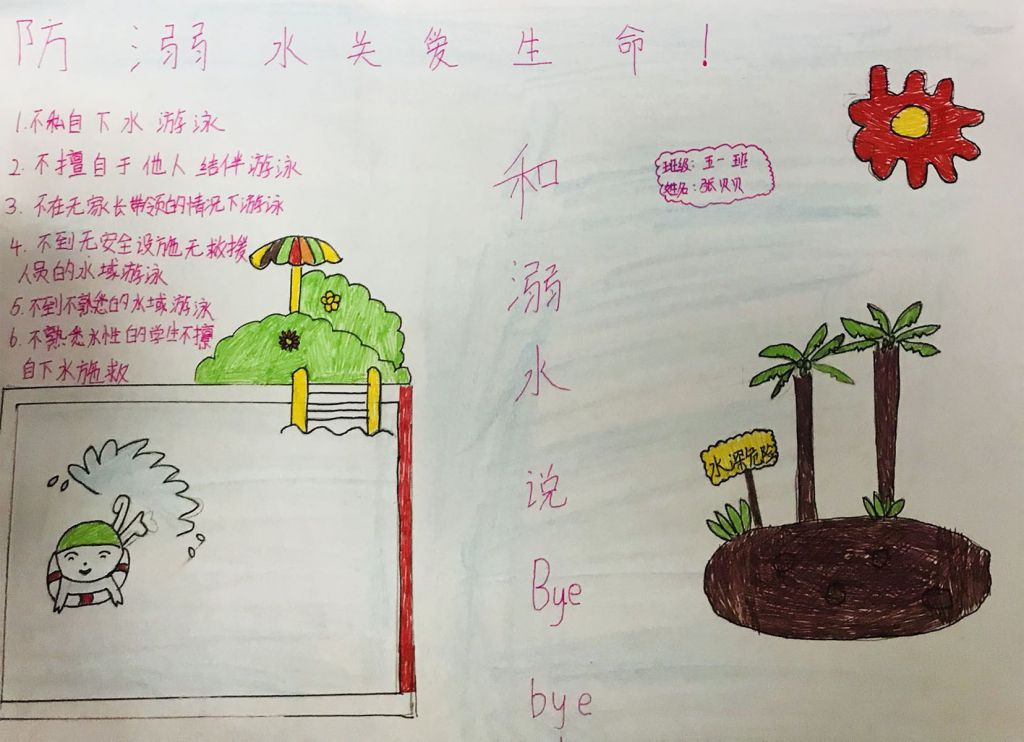 防溺水关爱生命！
1.不私自下水游泳
2.不擅自于他人结伴游泳
3.不在无家长带领的情况下游泳
4.不到无安全设施无救援
人员的水域游泳
5.不到不熟悉的水域游泳
6.不熟悉水性的学生不擅
自下水施救
和
溺
水
说
Bye
bye
班级：五一班
姓名：张贝贝
水深危险